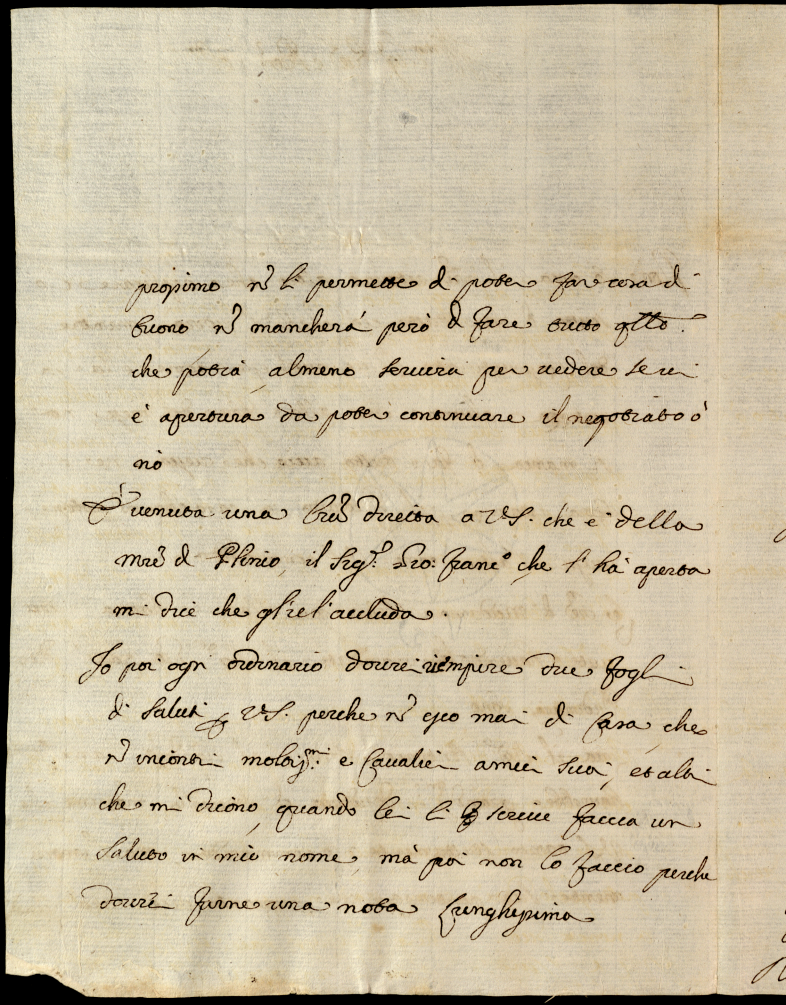 prossimo nõ li permette di poter far cosa di
buono nõ mancherà però d fare tutto qllo
che potrà, almeno servirà per vedere se vi
è apertura da poter continuare il negotiato ò
nò
È venuta una lrã diretta a V.S. che è della
mrẽ d Plinio, il Sigr. Gio: Franco che l'hà aperta
mi dice che gl'iel'accluda.
Io poi ogni ordinario dovrei riempire due fogli
di saluti p V.S. perche nõ esco mai di Casa, che
nõ incontri moltissmi e Cavalieri amici suoi, et altri
che mi dicono, quando lei li scrive faccia un
saluto in mio nome, mà poi non lo faccio perche
dovrei farne una nota lunghissima